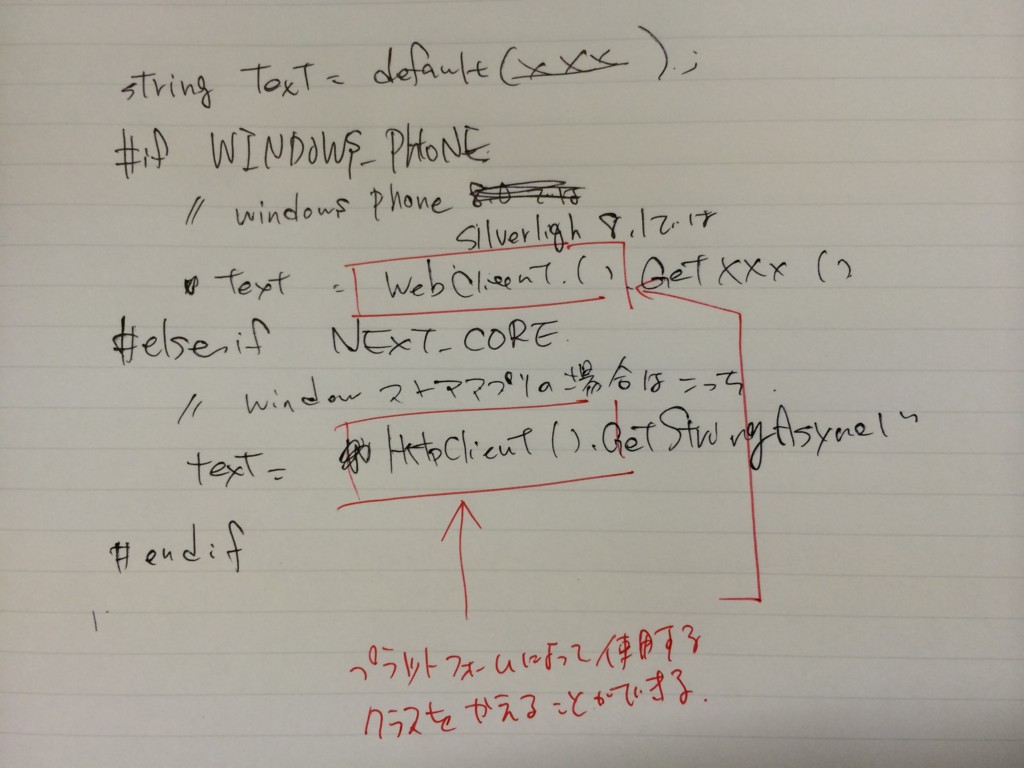 string Text = default(xxx);
#if WINDOWS_PHONE
// windows phone
Silverligh 8.1では
text = WebClient.().Getxxx()
#elseif NEXT_CORE
// window ストアアプリの場合はこっち.
text = HttpClient().GetStringAsync()
#endif
プラットフォームによって使用する
クラスをかえることができる.